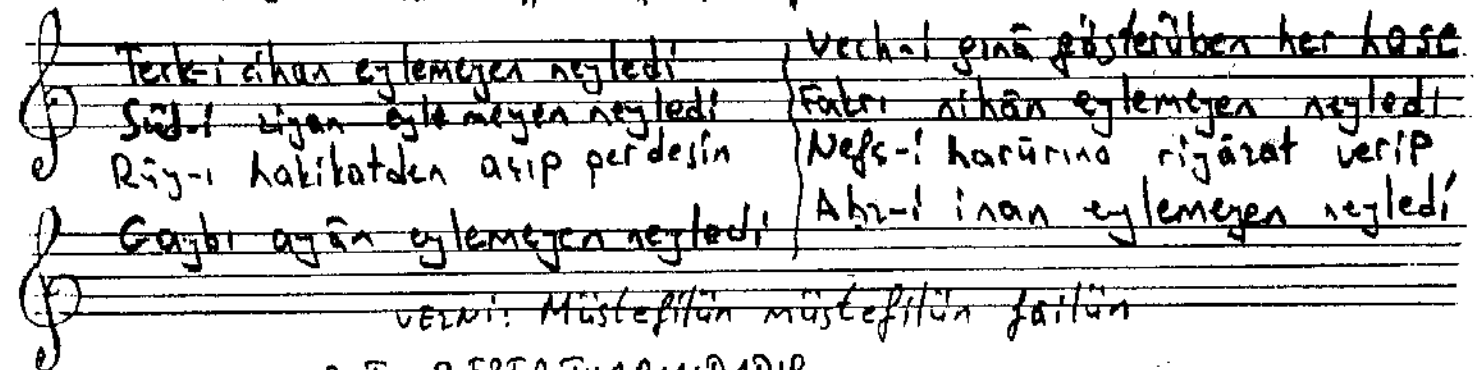 Terk-i cihan eylemeyen neyledi
Sûd-i ziyan eylemeyen neyledi
Rûy-ı hakikatden açıp perdesin
Gaybı ayân eylemeyen neyledi
Vech-i gınâ gösterüben her
Fakrı nihân eylemeyen neyledi
Nefs-i harûrına riyâzat verip
Ahz-i inan eylemeyen neyledi
VEZNİ: Müstefilün müstefilün failün